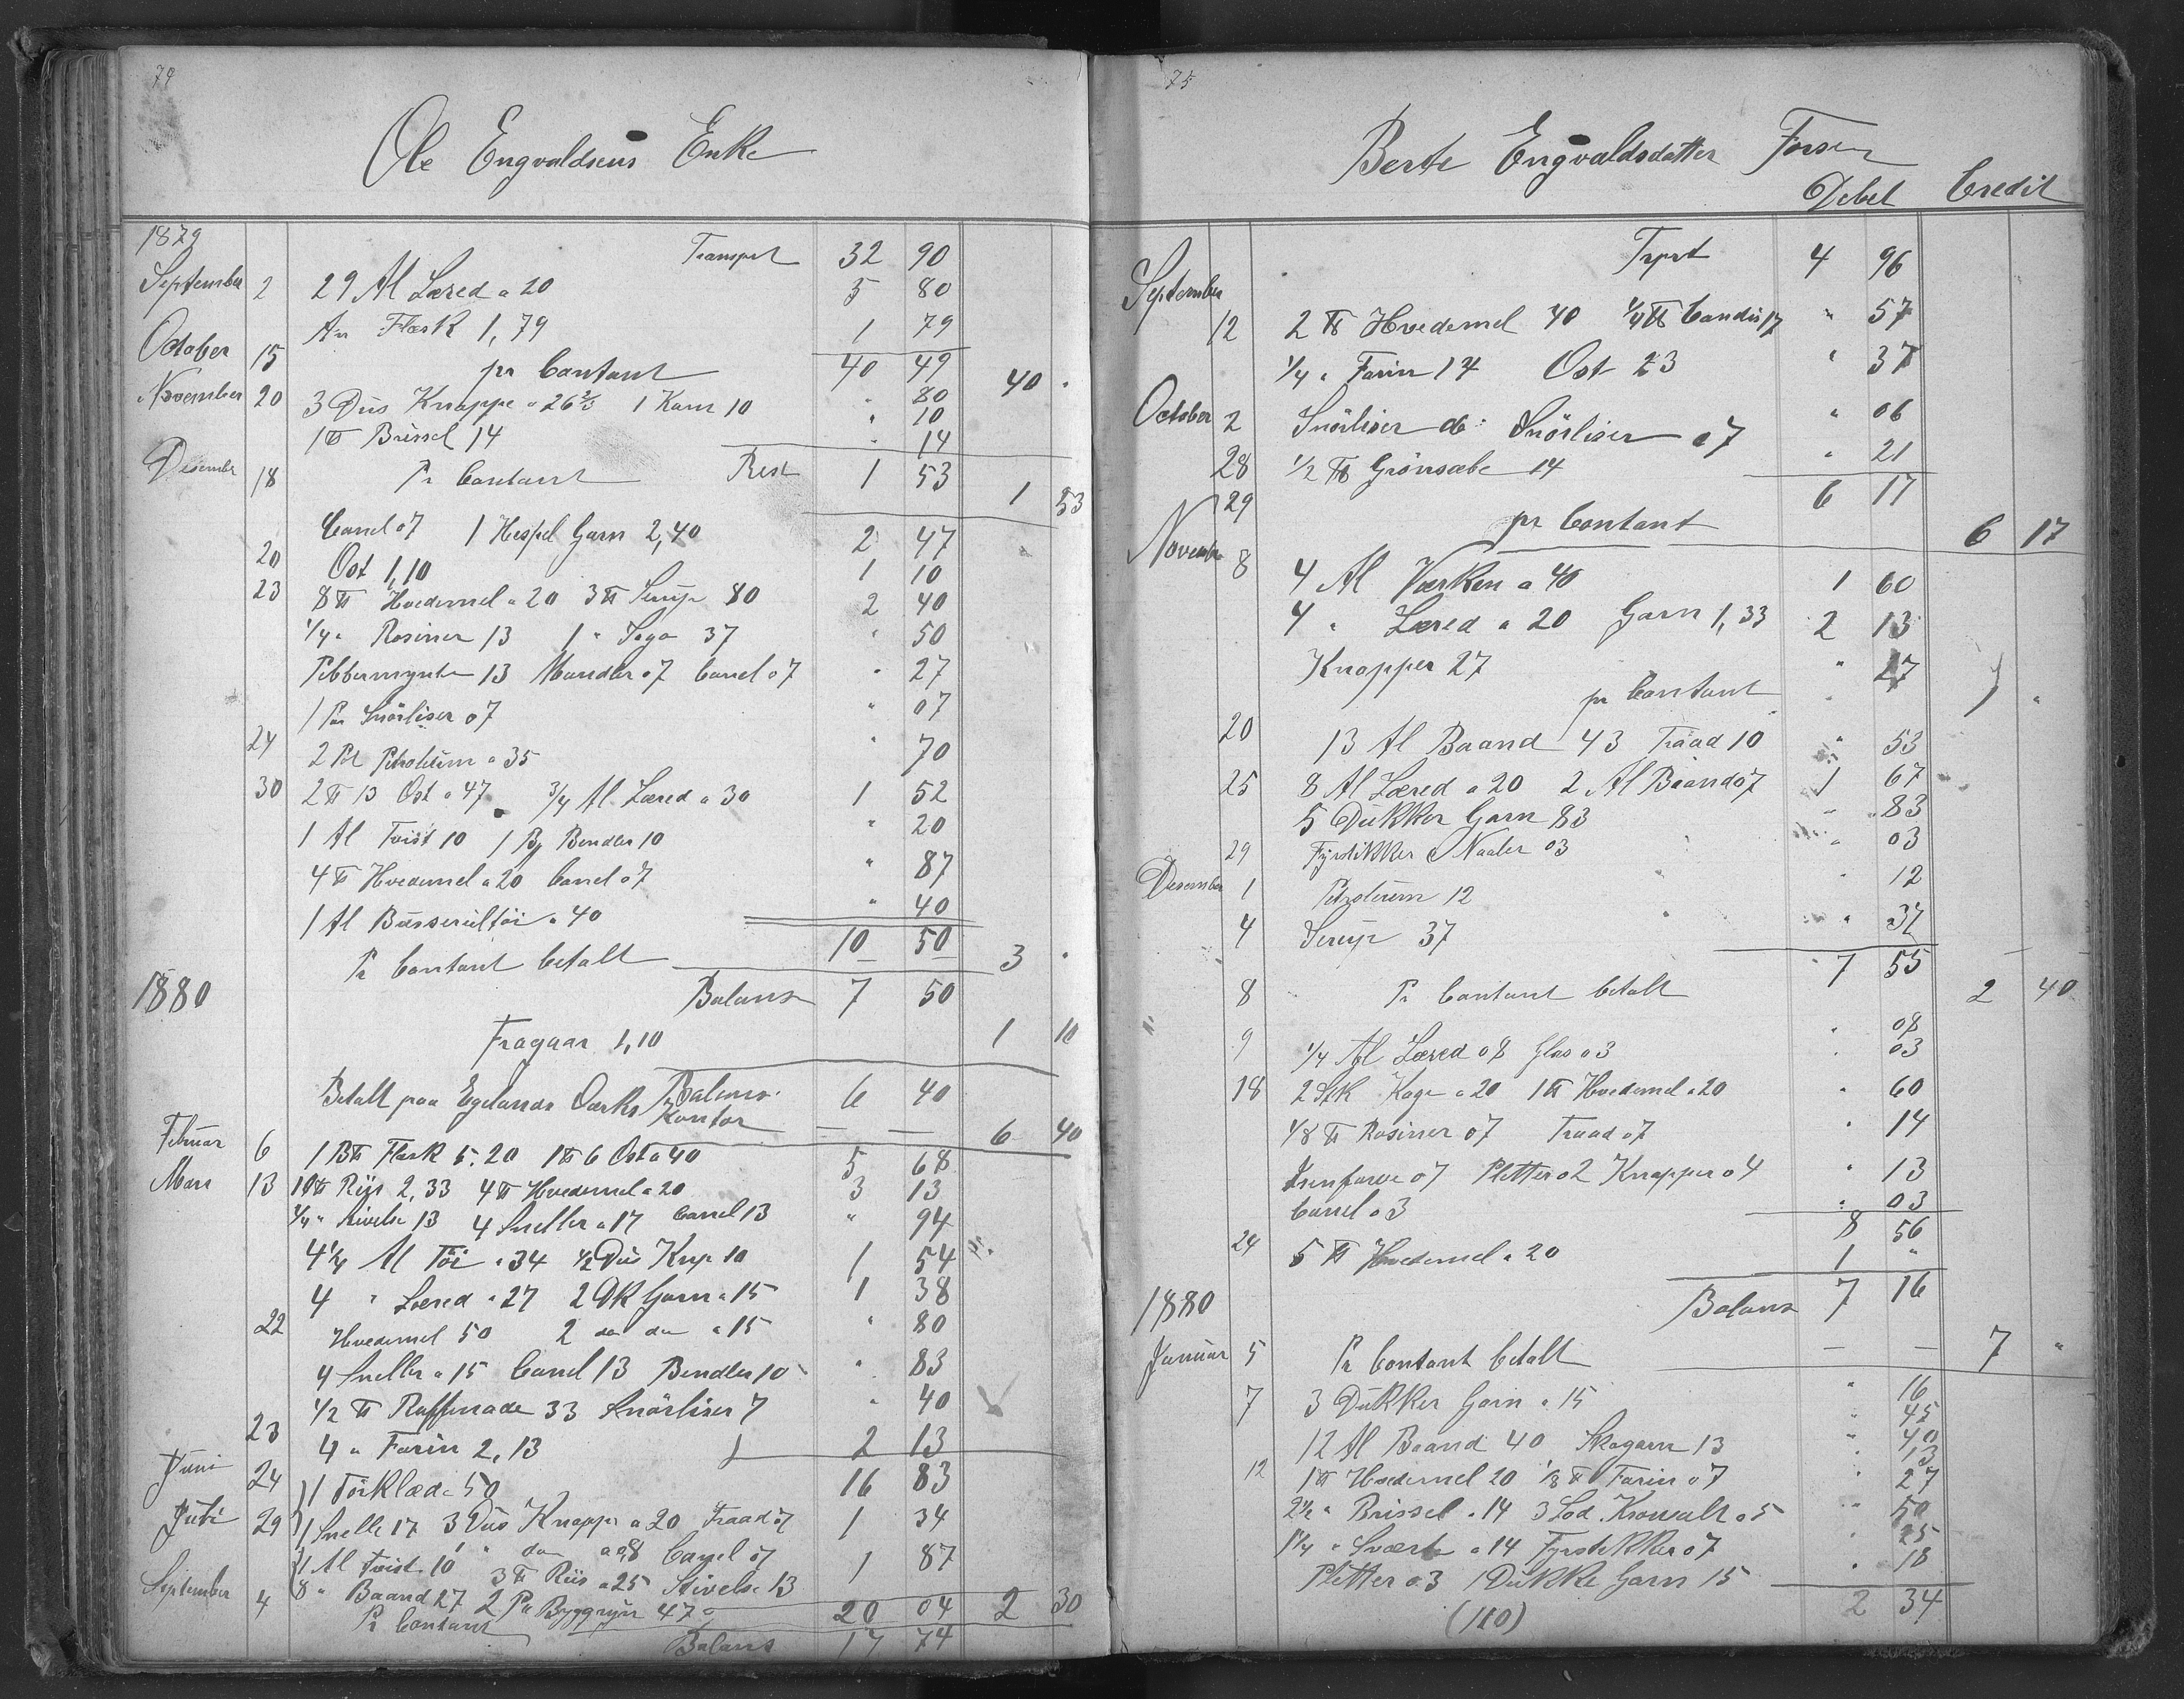 74
Ole Engvaldsens Enke
1879
Transport 32 90
September 2 29 Al Lærred a 20 5 80
Flæsk 1,79 1 79
October 15 pr Contant 40 49 40 "
November 20 3 Dus Knappe a 26 2/3 1 Kam 10 " 80
" 10
1 ℔ Brissel 14 " 14
Desember 18 Pr Contant Rest 1 53 1 53
Canel 07 1 Hespel Garn 2,40 2 47
20 Ost 1,10 1 10
23 8 ℔ Hvedemel a 20 3 ℔ Sirup 80 2 40
1/4 " Rosiner 13 1 " Sago 37 " 50
Pebbermynte 13 Mandler 07 Canel 07 " 27
1 Par Snörliser 07 " 07
24 2 Pot Petroleum a 35 " 70
30 2 ℔ 13 Ost a 47 3/4 Al Lærred a 30 1 52
1 Al Tvist 10 1 Bendler 10 " 20
4 ℔ Hvedemel a 20 Canel 07 " 87
1 Al Busserultöi a 40 " 40
Pr Contant betalt 10 50 3 "
1880 Balans 7 50
Fragaar 1,10 1 10
Balans 6 40
Betalt paa Egelands Værks Kontor — — 6 40
Februar 6 1 B℔ Flæsk 5.20 1 ℔ 6 Ost a 40 5 68
Mars 13 10 ℔ Riis 2,33 4 ℔ Hvedemel a 20 3 13
1/4 " Stivelse 13 4 Sneller a 17 Canel 13 " 94
4 1/4 Al Töi a 34 1/2 Dus Knp 10 1 54
4 " Lærred a 27 2 Dk Garn a 15 1 38
22 Hvedemel 50 2 do do a 15 " 80
4 Sneller a 15 Canel 13 Bendler 10 " 83
1/2 ℔ Raffinade 33 Snörliser 7 " 40
23 4 " Farin 2,13 2 13
Juni 24 1 Törklæde 50 16 83
Juli 29 1 Snelle 17 3 Dus Knapper a 20 Traad 07 1 34
1 Al Tvist 10 " do a 08 Canel 07 1 87
8 " Baand 27 3 ℔ Riis a 25 Stivelse 13
September 4 2 Pr Byggryn 47
Pr Contant 20 04 2 30
Balans 17 74
75
Berte Engvaldsdatter Forsen
Debet Credit
Trprt 4 96
September 12 2 ℔ Hvedemel 40 1/4 ℔ Candis 17 " 57
1/4 " Farin 14 Ost 23 " 37
October 2 Snörliser 06 Snörliser 07 " 06
28 1/2 ℔ Grönsæbe 14 " 21
29 pr Contant 6 17 6 17
November 8 4 Al Værken a 40 1 60
4 " Lærred a 20 Garn 1,33 2 13
Knapper 27 " 27
pr Contant
20 13 Al Baand 43 Traad 10 " 53
25 8 Al Lærred a 20 2 Al Baand 07 1 67
5 Dukker Garn 83 " 83
29 Fyrstikker Naaler 03 " 03
Desember 1 Petroleum 12 " 12
4 Sirup 37 " 37
7 55
8 Pr Contant betalt 2 40
9 1/4 Al Lærred 08 Glas 03 " 08
" 03
18 2 Stk Kage a 20 1 ℔ Hvedemel a 20 " 60
1/8 ℔ Rosiner 07 Traad 07 " 14
07 Pletter 02 Knapper 04 " 13
Canel 03 " 03
8 56
24 5 ℔ Hvedemel a 20 1 "
1880 Balans 7 16
Januar 5 Pr Contant betalt — — 7 "
7 3 Dukker Garn a 15 " 16
" 45
12 Al Baand 40 Skogarn 13 " 40
" 13
12 1 ℔ Hvedemel 20 1/8 ℔ Farin 07 " 27
2 1/2 " Brissel a 14 3 Lod a 5 " 50
1 1/4 " Sværte a 14 Fyrstikker 07 " 25
Pletter 03 1 Dukke Garn 15 " 18
(110) 2 34